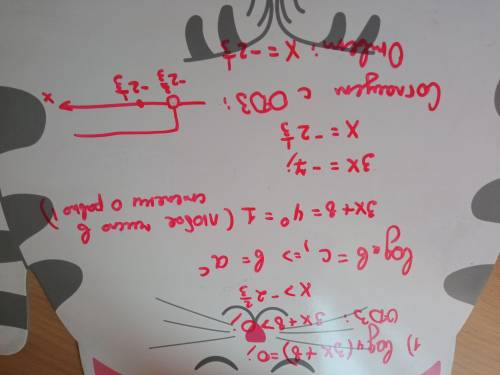 1) log₄(3x+8)=0;
ОДЗ: 3x+8>0;
x>-2 2/3
logₐb=c, => b=aᶜ
3x+8=4⁰=1 (любое число в
степени 0 равно 1)
3x=-7;
x=-2 1/3
Согласуем с ОДЗ:
-2 2/3 -2 1/3 x
Ответ: x=-2 1/3